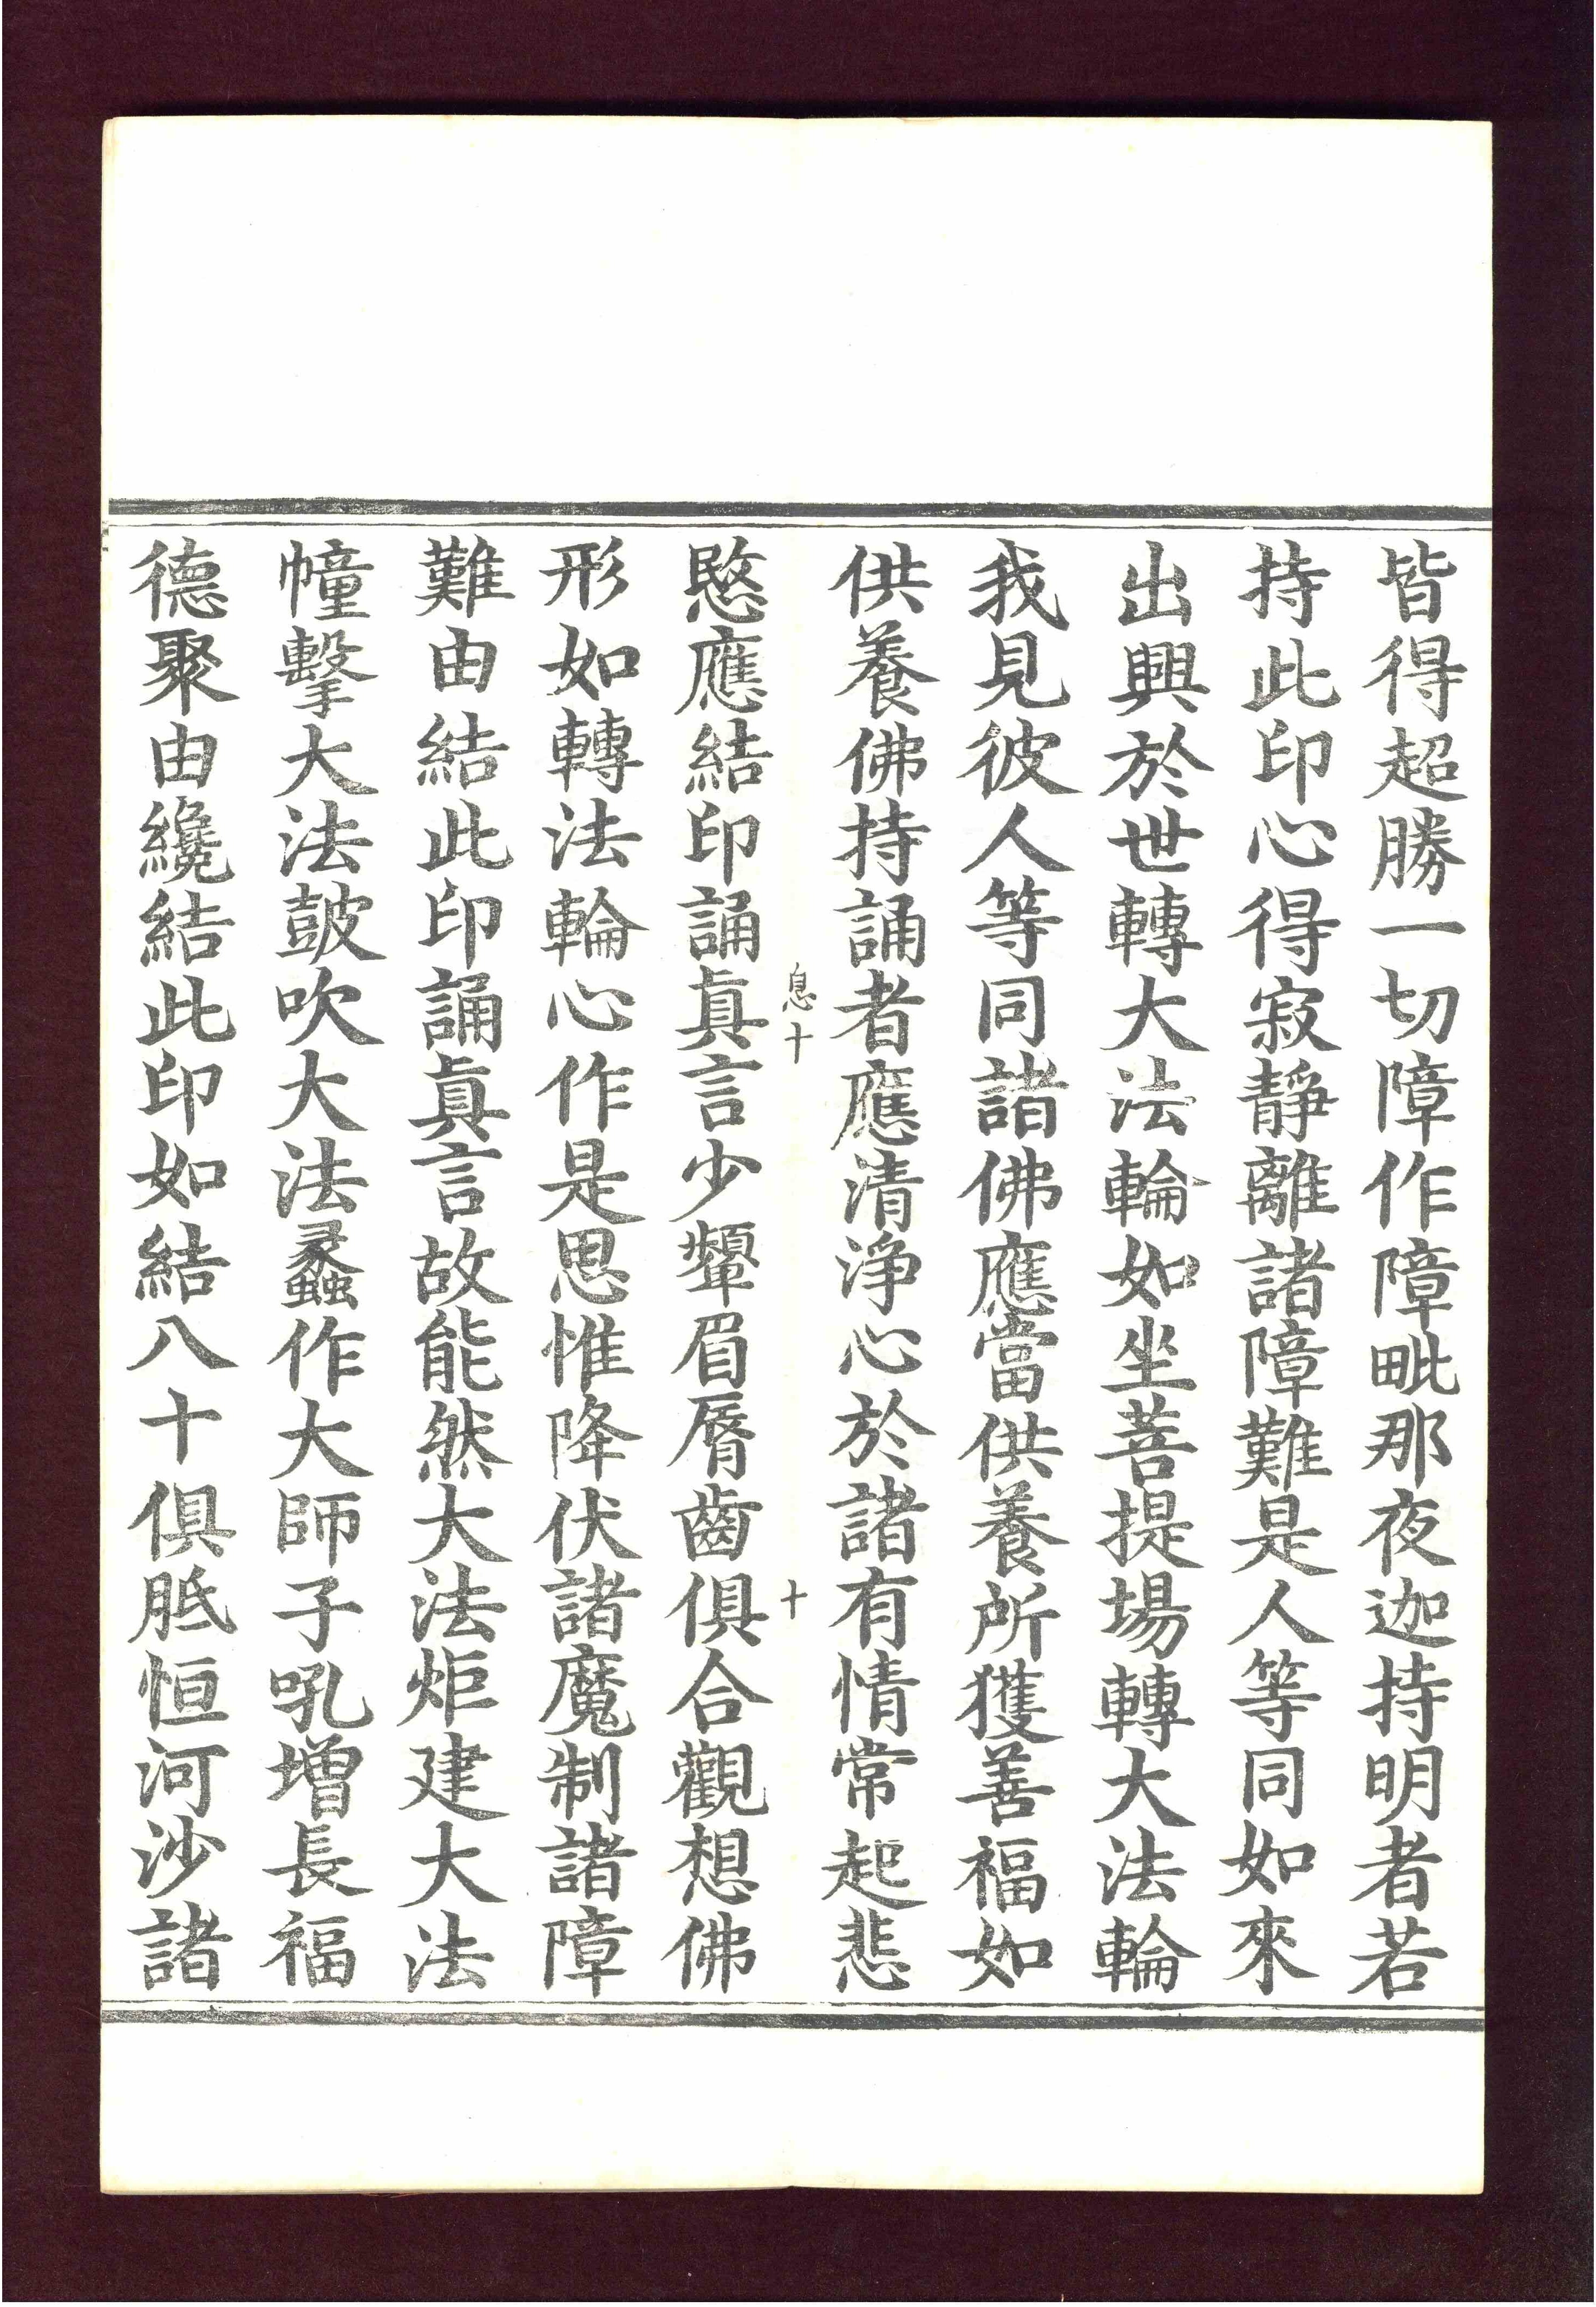 皆得超勝一切障作障毗那夜迦持明者若
持此印心得寂靜離諸障難是人等同如來
出興於世轉大法輪如坐菩提場轉大法輪
我見彼人等同諸佛應當供養所獲善福如
供養佛持誦者應清淨心於諸有情常起悲
息十
十
愍應結印誦眞言少顰眉脣齒俱合觀想佛
形如轉法輪心作是思惟降伏諸魔制諸障
難由結此印誦眞言故能然大法炬建大法
幢擊大法皷吹大法蠡作大師子吼增長福
德聚由纔結此印如結八十俱胝恒河沙諸